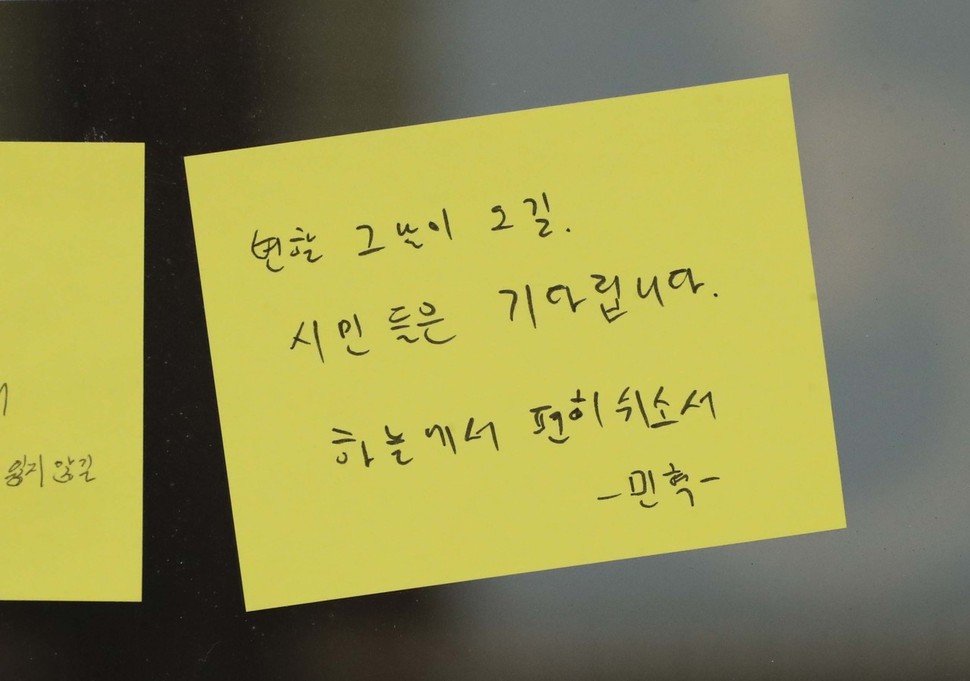 변할 그날이 오길.
시민들은 기다립니다.
하늘에서 편히쉬소서
-민혁-
않길